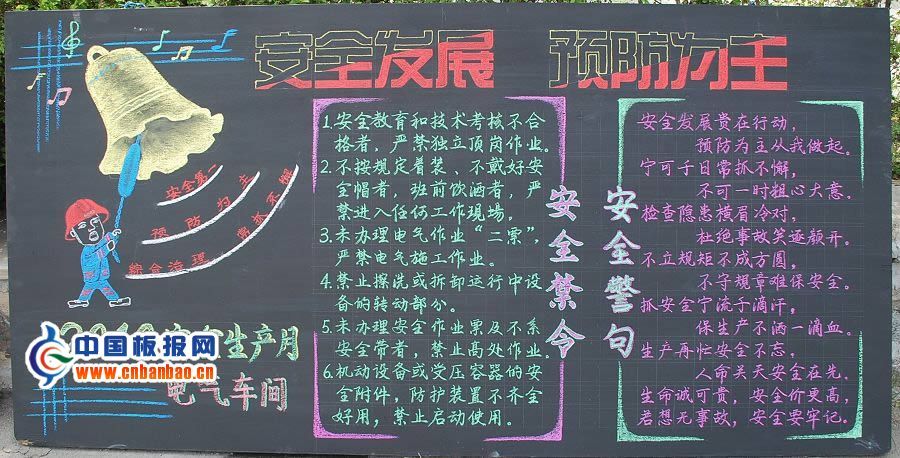 安全发展 预防为主
安全第一
预防为主
综合治理 常抓不懈
生产月
电气车间
中国板报网
www.cnbanbao.cn
安全禁令
1.安全教育和技术考核不合
格者，严禁独立顶岗作业。
2.不按规定着装、不戴好安
全帽者，班前饮酒者，严
禁进入任何工作现場。
3.未办理电气作业“二票”，
严禁电气施工作业。
4.禁止擦洗或拆卸运行中设
备的转动部分。
5.未办理安全作业票及不系
安全带者，禁止高处作业。
6.机动设备或受压容器的安
全附件，防护装置不齐全
好用，禁止启动使用。
安全警句
安全发展贵在行动，
预防为主从我做起。
宁可千日常抓不懈，
不可一时粗心大意。
检查隐患横眉冷对，
杜绝事故笑逐颜开。
不立规矩不成方圆，
不守规章难保安全。
抓安全宁流千滴汗，
保生产不洒一滴血。
生产再忙安全不忘，
人命关天安全在先。
生命诚可贵，安全价更高，
若想无事故，安全要牢记。